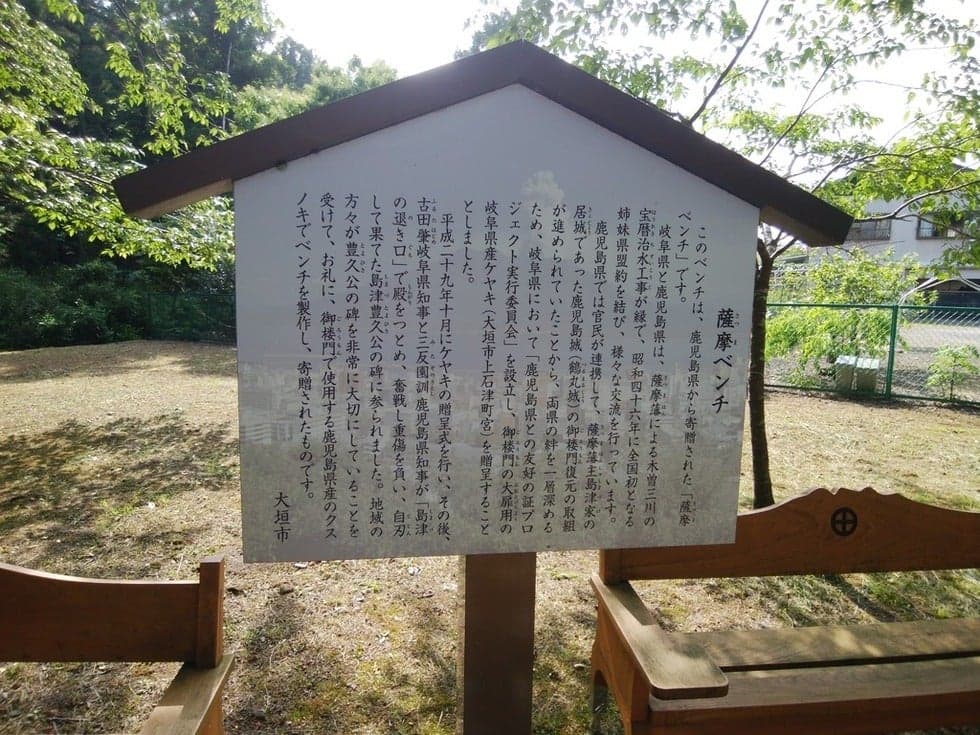 薩摩ベンチ
このベンチは、鹿児島県から寄贈された「薩摩
ベンチ」です。
岐阜県と鹿児島県は、薩摩藩による木曽三川の
宝暦治水工事が縁で、昭和四十六年に全国初となる
姉妹県盟約を結び、様々な交流を行っています。
鹿児島県では官民が連携して、薩摩藩主島津家の
居城であった鹿児島城(鶴丸城)の御楼門復元の取組
が進められていたことから、両県の絆を一層深める
ため、岐阜県において「鹿児島県との友好の証プロ
ジェクト実行委員会」を設立し、御楼門の大扉用の
岐阜県産ケヤキ(大垣市上石津町宮)を贈呈すること
としました。
平成二十九年十月にケヤキの贈呈式を行い、その後、
古田肇岐阜県知事と三反園訓鹿児島県知事が「島津
の退き口」で殿をつとめ、奮戦し重傷を負い、自刃
して果てた島津豊久公の碑に参られました。地域の
方々が豊久公の碑を非常に大切にしていることを
受けて、お礼に、御楼門で使用する鹿児島県産のクス
ノキでベンチを製作し、寄贈されたものです。
大垣市